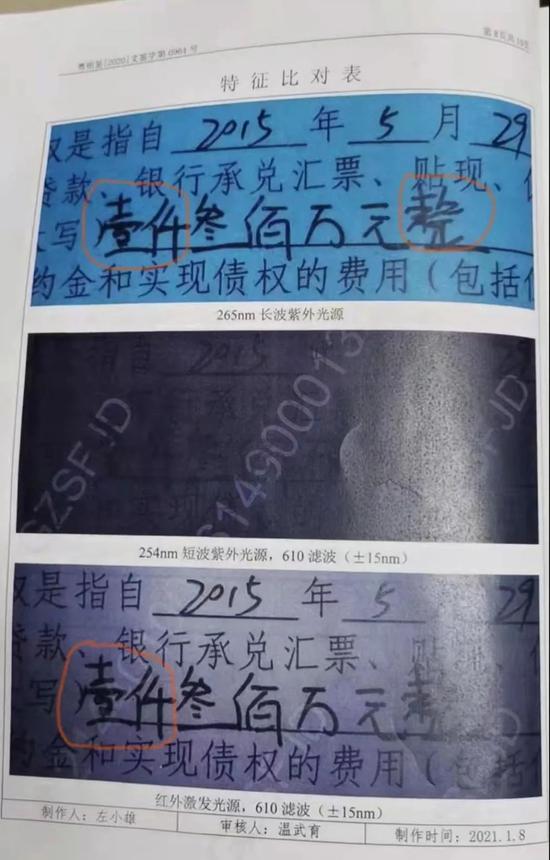 粤明鉴[2020]文鉴字第0961号
第8页共19页
特征比对表
权是指自 2015 年 5 月 29
贷款、银行承兑汇票、贴现、
大写 壹仟叁佰万元整
约金和实现债权的费用（包括
265nm 长波紫外光源
指自 2015
GZSFJD
6149000013
SFJD
254nm 短波紫外光源，610 滤波（±15nm）
权是指自 2015 年 5 29
贷款、银行承兑汇票、贴现、
写 壹仟叁佰万元整
约金和实现债权的费用（包括
红外激发光源，610 滤波（±15nm）
制作人：左小雄
审核人：温武育
制作时间：2021.1.8